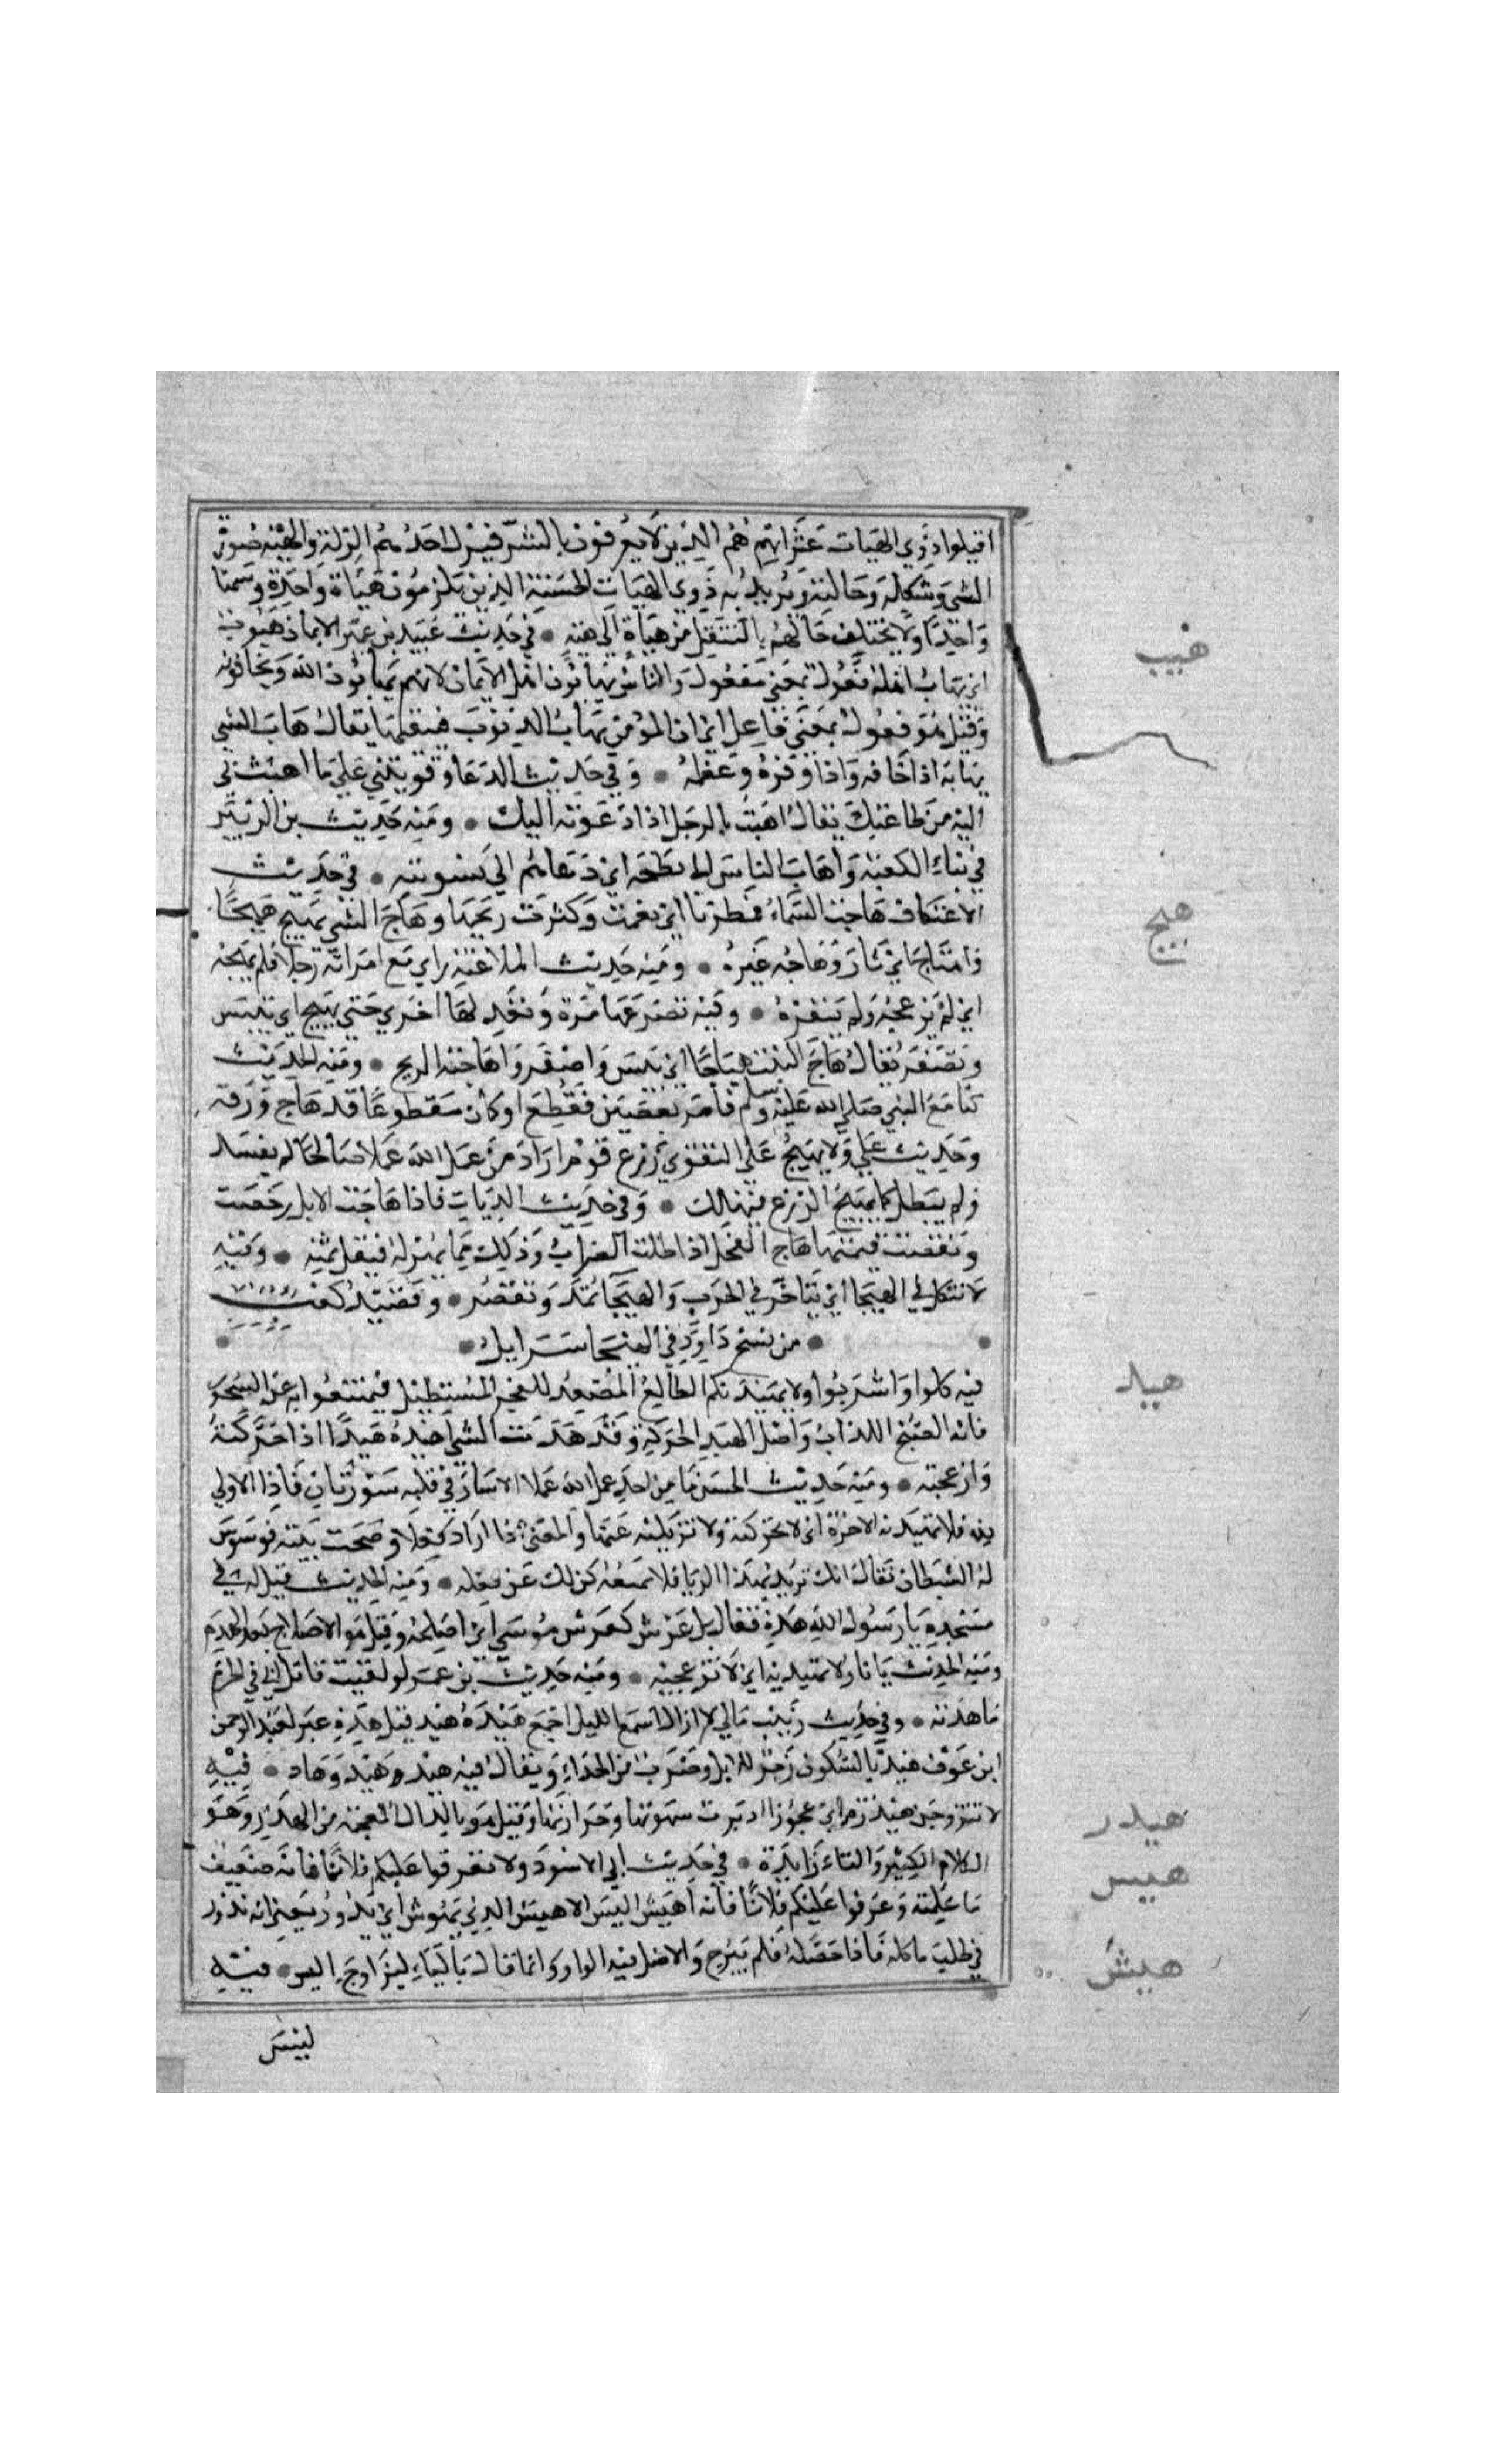 اقيلوا ذوي الهيات عثراتهم هم الذين لا يعرفون بالشر فيزل احدهم الزلة والهيئة صورة
الشي وشكله وحالته ويريد به ذوي الهيات الحسنة الذين يلزمون هياة واحدة وسمتا
واحدا ولا يختلف حالهم بالتنقل من هياة الي هيئة • في حديث عبيد بن عمير الايمان هيوب
هيب
اي يهاب اهله فعول بمعني مفعول والناس يهابون اهل الايمان لانهم يهابون الله ويخافونه
وقيل هو فعول بمعني فاعل اي ان المؤمن يهاب الذنوب فيتقيها يقال هاب الشي
يهابه اذا خافه واذا وقره وعظمه • وفي حديث الدعا وقويتني علي ما اهبت بي
اليه من طاعتك يقال اهبت بالرجل اذا دعوته اليك • ومنه حديث بن الزبير
في بناء الكعبة واهاب الناس الي بطحه اي دعاهم الي تسويته • في حديث
الاعتكاف هاجت السماء فمطرنا اي تغيمت وكثرت ريحها وهاج الشي يهيج هيجا
هيج
واهتاج اي ثار وهاجه غيره • ومنه حديث الملاعنة راي مع امراته رجلا فلم يهجه
اي لم يزعجه ولم ينفره • وفيه تصرعها مرة وتعدلها اخري حتي تهيج اي تيبس
وتصفر يقال هاج النبت هياجا اي يبس واصفر واهاجته الريح • ومنه الحديث
كنا مع النبي صلي الله عليه وسلم فامر بغصن فقطع او كان مقطوعا قد هاج ورقه
وحديث علي ولا يهيج علي التقوي زرع قوم اراد من عمل لله عملا صالحا لم يفسد
ولم يبطل كما يهيج الزرع فيهلك • وفي حديث الديات فاذا هاجت الابل رخصت
ونقصت قيمتها هاج الفحل اذا طلب الضراب وذلك مما يهزله فيقل ثمنه • وفيه
لا تتكل في الهيجا اي يتاخر في الحرب والهيجا تمد وتقصر • وقصيد كعب
• من نسج داود في الهيجا سرابيل •
فيه كلوا واشربوا ولا يهيدنكم الطالع المصعد للفجر المستطيل فيمتنعوا به عن السحور
هيد
فانه الصبح الكذاب واصل الهيد الحركة وقد هدت الشي اهيده هيدا اذا حركته
وازعجته • ومنه حديث الحسن ما من احد عمل لله عملا الا سار في قلبه سورتان فاذا الاولي
لله فلا تهيدنه الاخرة اي لا تحركنه ولا تزيلنه عنها والمعني اذا اراد فعلا وصحت نيته فوسوس
له الشيطان فقال انك تريد بهذا الريا فلا يمنعه ذلك عن فعله • ومنه الحديث قيل له في
مسجده يا رسول الله هده فقال بل عرش كعرش موسي اي اصلحه وقيل هو الاصلاح بعد الهدم
ومنه الحديث يا نار لا تهيديه اي لا تزعجيه • ومنه حديث بن عمر لو لقيت قاتل ابي في الحرم
ما هدته • وفي حديث زينب مالي لا ازال اسمع الليل اجمع هيد هيد قيل هذه عير لعبد الرحمن
ابن عوف هيد بالسكون زجر للابل وضرب من الحداء ويقال فيه هيد وهيد وهاد • فيه
لا تتزوجن هيدرة اي عجوزا ادبرت شهوتها وحرارتها وقيل هو بالذال المعجمة من الهذر وهو
هيدر
الكلام الكثير والتاء زايدة • في حديث ابي الاسود ولا تعرفوا عليكم فلانا فانه ضعيف
هيس
ما علمته وعرفوا عليكم فلانا فانه اهيس اليس الاهيس الذي يهوس اي يدور يعني انه يدور
في طلب ما ياكله فاذا حصله فلم يبرح والاصل فيه الواو وانما قال بالياء ليزاوج اليس • فيه
هيش
ليس